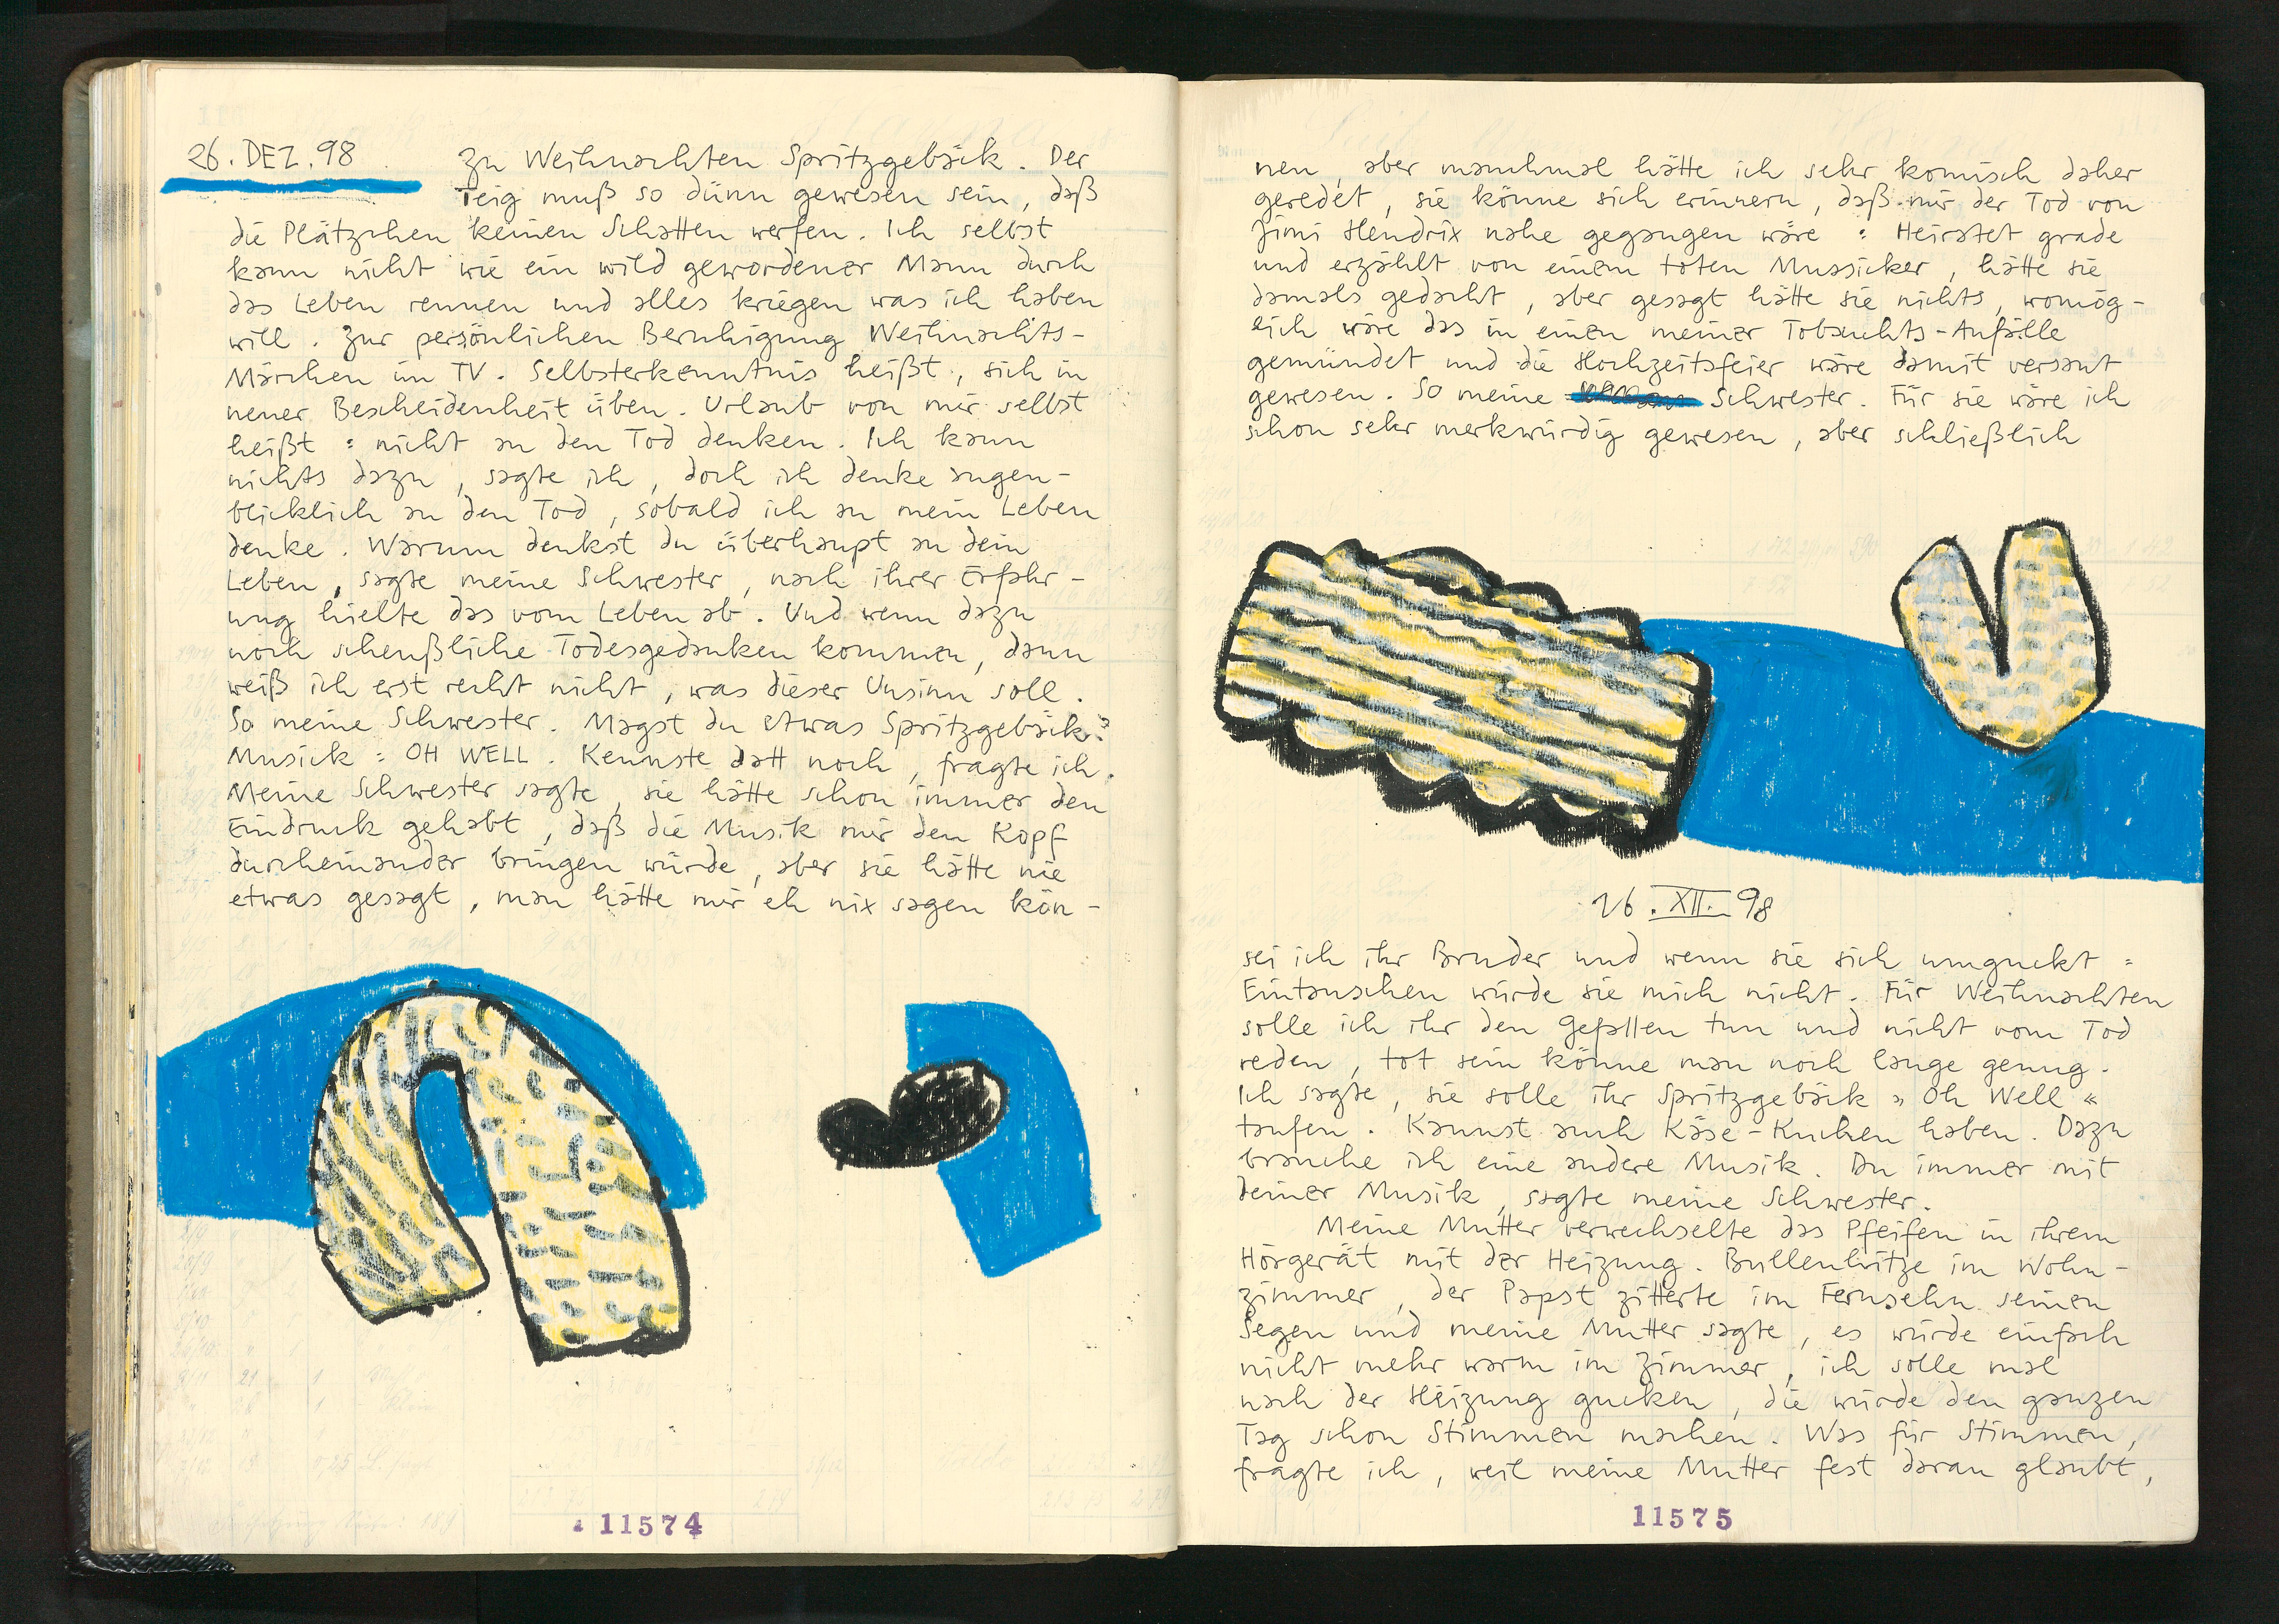 26. DEZ. 98 Zu Weihnachten Spritzgebäck. Der
Teig muß so dünn gewesen sein, daß
die Plätzchen keinen Schatten werfen. Ich selbst
kann nicht wie ein wild gewordener Mann durch
das Leben rennen und alles kriegen was ich haben
will. Zur persönlichen Beruhigung Weihnachts-
Märchen im TV. Selbsterkenntnis heißt, sich in
neuer Bescheidenheit üben. Urlaub von mir selbst
heißt: nicht an den Tod denken. Ich kann
nichts dazu, sagte ich, doch ich denke augen-
blicklich an den Tod, sobald ich an mein Leben
denke. Warum denkst du überhaupt an dein
Leben, sagte meine Schwester, nach ihrer Erfahr-
ung hielte das vom Leben ab. Und wenn dazu
noch scheußliche Todesgedanken kommen, dann
weiß ich erst recht nicht, was dieser Unsinn soll.
So meine Schwester. Magst du etwas Spritzgebäck?
Musick: OH WELL. Kennste datt noch, fragte ich.
Meine Schwester sagte, sie hätte schon immer den
Eindruck gehabt, daß die Musik mir den Kopf
durcheinander bringen würde, aber sie hätte nie
etwas gesagt, man hätte mir eh nix sagen kön-
11574
nen, aber manchmal hätte ich sehr komisch daher
geredet, sie könne sich erinnern, daß mir der Tod von
Jimi Hendrix nahe gegangen wäre: Heiratet grade
und erzählt von einem toten Mussicker, hätte sie
damals gedacht, aber gesagt hätte sie nichts, womög-
lich wäre das in einen meiner Tobsuchts-Anfälle
gemündet und die Hochzeitsfeier wäre damit versaut
gewesen. So meine Schwester. Für sie wäre ich
schon sehr merkwürdig gewesen, aber schließlich
26. XII. 98
sei ich ihr Bruder und wenn sie sich umguckt:
Eintauschen würde sie mich nicht. Für Weihnachten
solle ich ihr den Gefallen tun und nicht vom Tod
reden, tot sein könne man noch lange genug.
Ich sagte, sie solle ihr Spritzgebäck »Oh Well«
taufen. Kannst auch Käse-Kuchen haben. Dazu
brauche ich eine andere Musik. Du immer mit
deiner Musik, sagte meine Schwester.
Meine Mutter verwechselte das Pfeifen in ihrem
Hörgerät mit der Heizung. Bullenhitze im Wohn-
zimmer, der Papst zitterte im Fernsehn seinen
Segen und meine Mutter sagte, es würde einfach
nicht mehr warm im Zimmer, ich solle mal
nach der Heizung gucken, die würde den ganzen
Tag schon Stimmen machen. Was für Stimmen,
fragte ich, weil meine Mutter fest daran glaubt,
11575